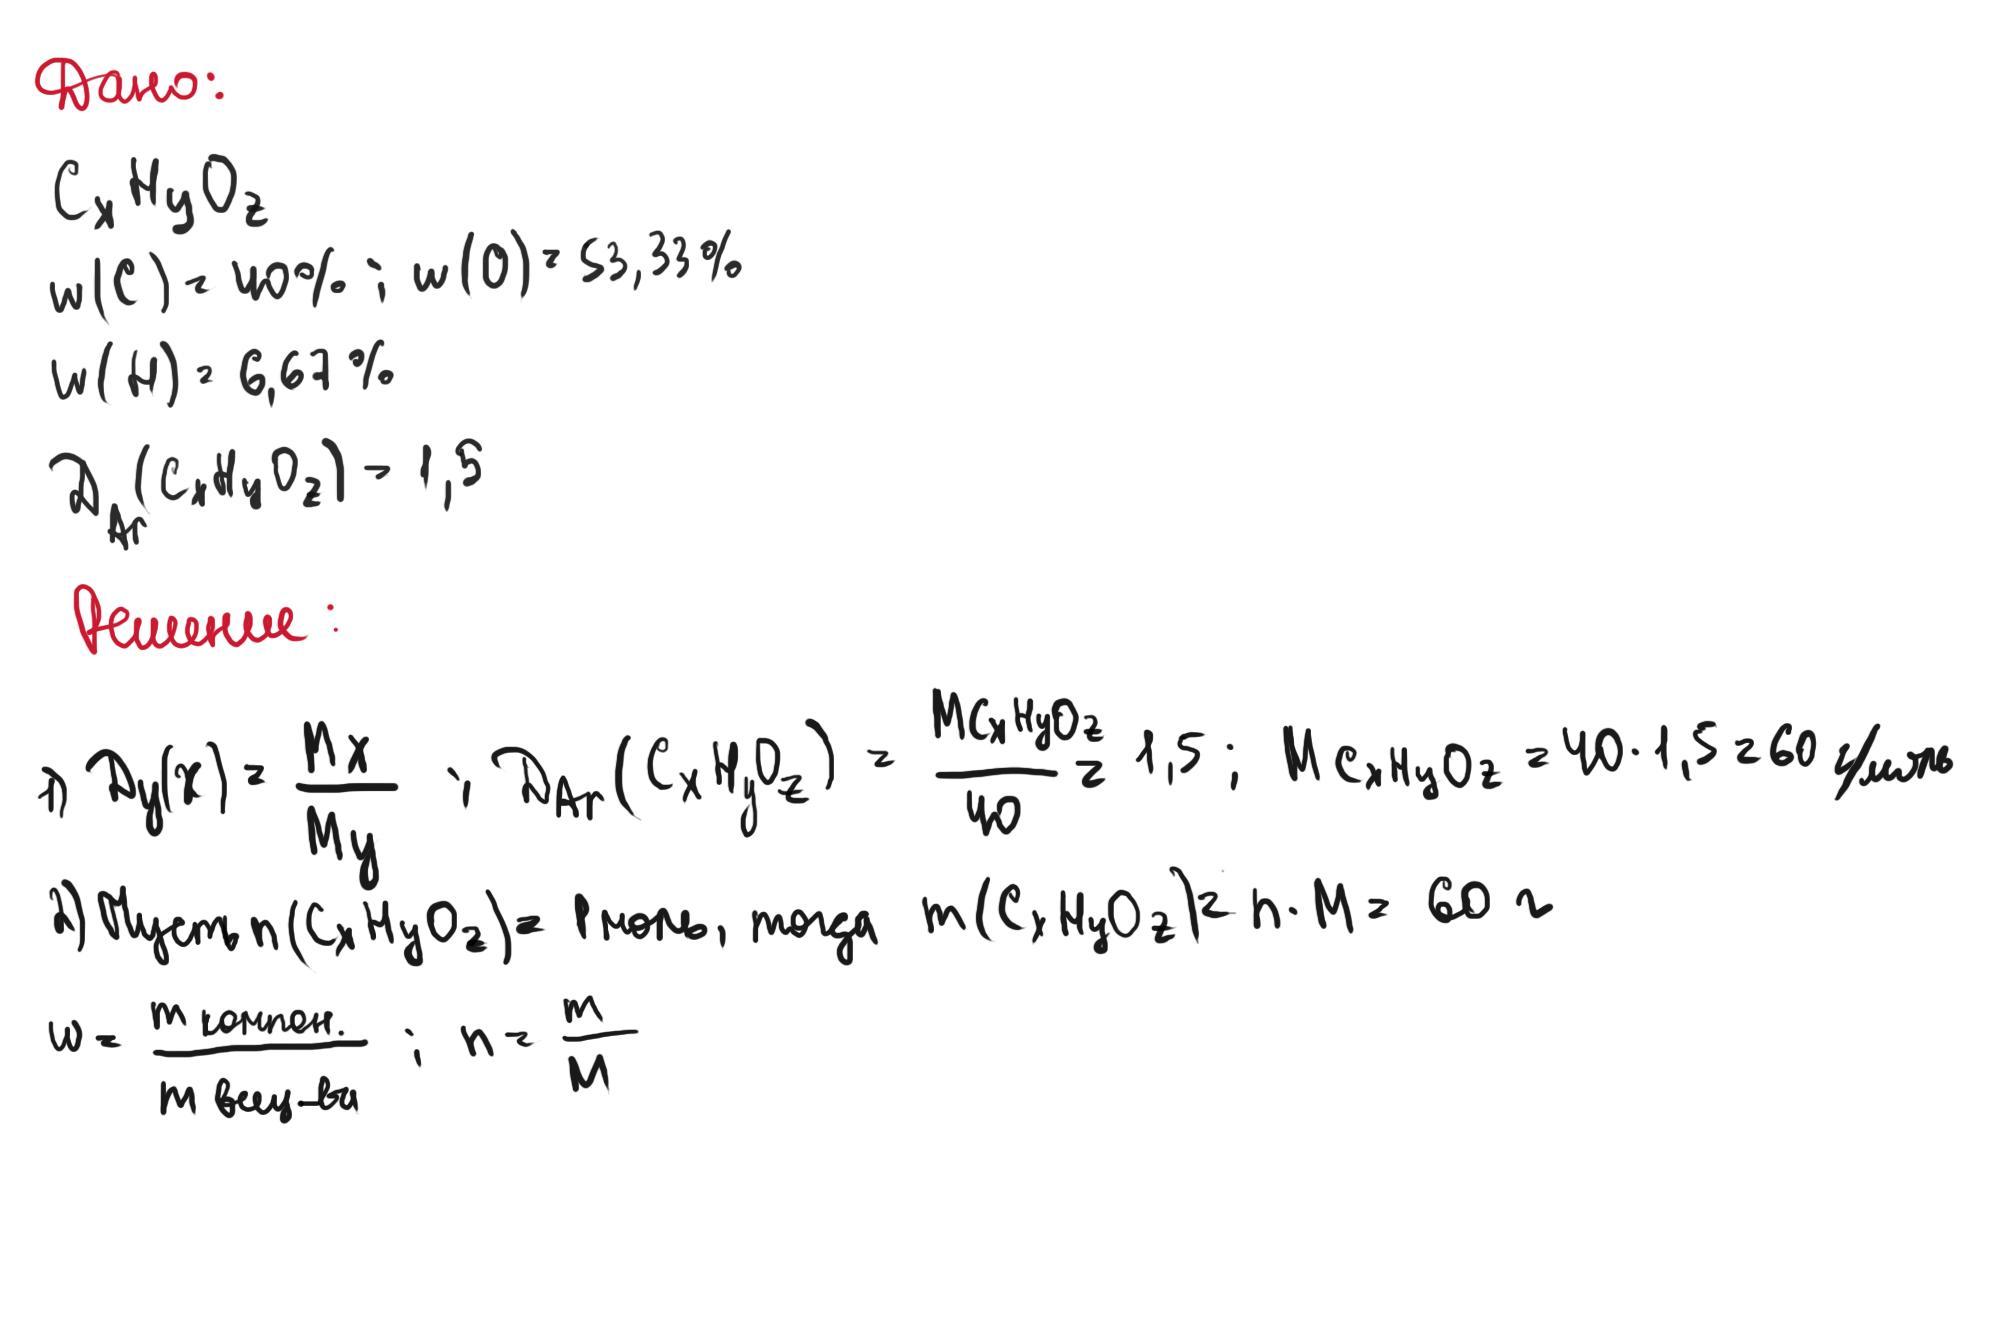 Дано:
CxHyOz
w(C) = 40% ; w(O) = 53,33%
w(H) = 6,67%
D_Ar(CxHyOz) = 1,5
Решение:
1) Dy(x) = Mx / My ; D_Ar(CxHyOz) = MCxHyOz / 40 = 1,5 ; MCxHyOz = 40 · 1,5 = 60 г/моль
2) Пусть n(CxHyOz) = 1 моль, тогда m(CxHyOz) = n · M = 60 г
w = m компон. / m вещ-ва ; n = m / M